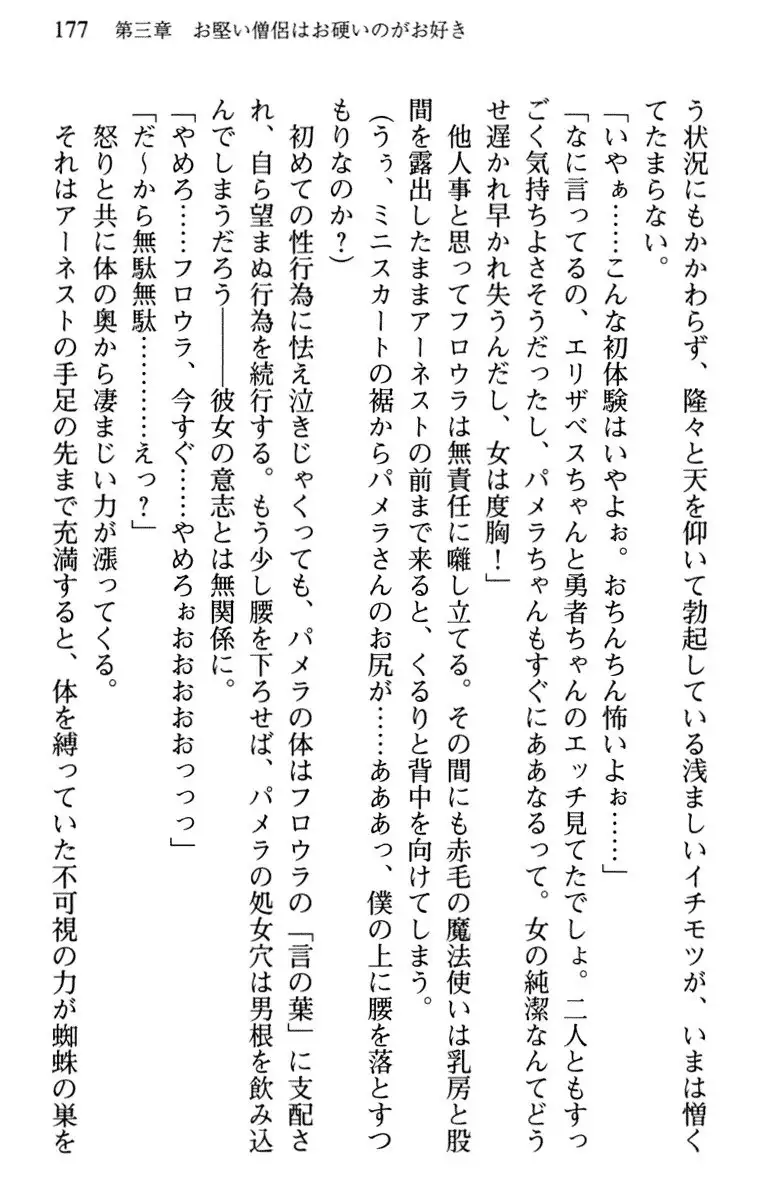 177 第三章　お堅い僧侶はお硬いのがお好き
う状況にもかかわらず、隆々と天を仰いて勃起している浅ましいイチモツが、いまは憎く
てたまらない。
「いやぁ……こんな初体験はいやよぉ。おちんちん怖いよぉ……」
「なに言ってるの、エリザベスちゃんと勇者ちゃんのエッチ見てたでしょ。二人ともすっ
ごく気持ちよさそうだったし、パメラちゃんもすぐにああなるって。女の純潔なんてどう
せ遅かれ早かれ失うんだし、女は度胸！」
他人事と思ってフロウラは無責任に囃し立てる。その間にも赤毛の魔法使いは乳房と股
間を露出したままアーネストの前まで来ると、くるりと背中を向けてしまう。
（うぅ、ミニスカートの裾からパメラさんのお尻が……あああっ、僕の上に腰を落とすつ
もりなのか？）
初めての性行為に怯え泣きじゃくっても、パメラの体はフロウラの「言の葉」に支配さ
れ、自ら望まぬ行為を続行する。もう少し腰を下ろせば、パメラの処女穴は男根を飲み込
んでしまうだろう――彼女の意志とは無関係に。
「やめろ……フロウラ、今すぐ……やめろぉおおおおおっっっ」
「だ～から無駄無駄…………えっ？」
怒りと共に体の奥から凄まじい力が漲ってくる。
それはアーネストの手足の先まで充満すると、体を縛っていた不可視の力が蜘蛛の巣を